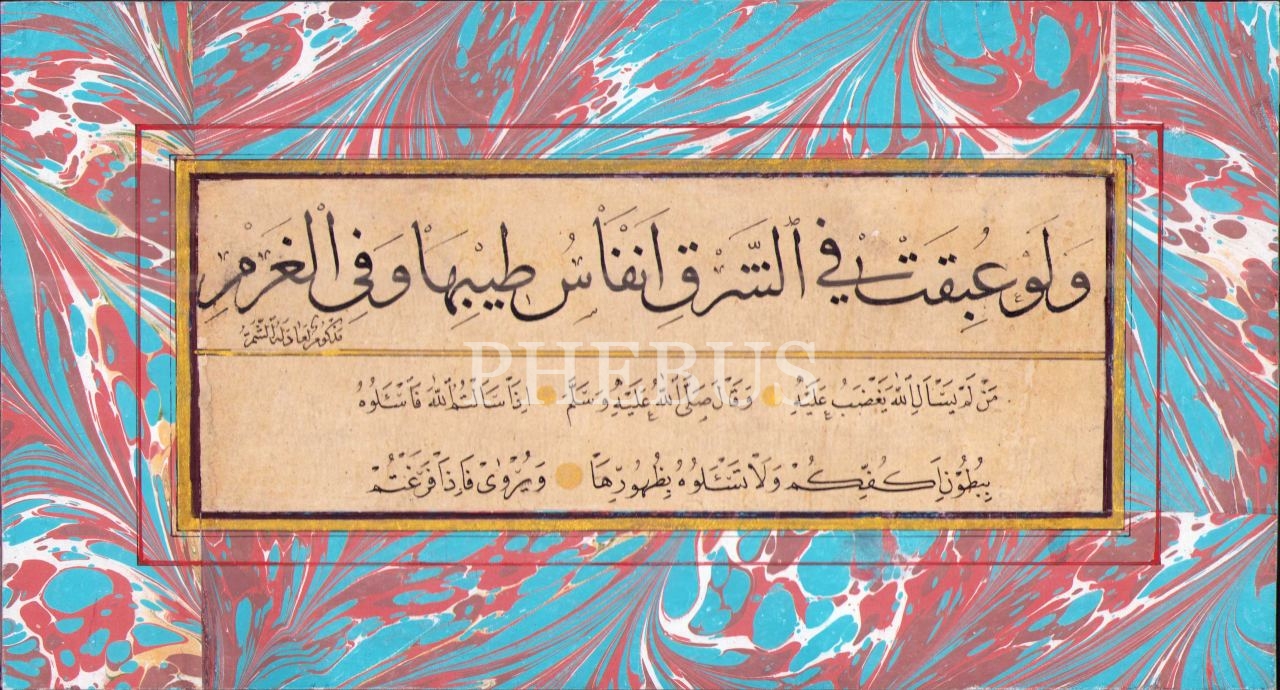 وَلَوْ عَبِقَتْ فِي الشَّرْقِ اَنْفَاسُ طِيْبِهَا وَفِي الْغَرْمِ
مذكوم لعاد له الشم
PHEBUS
مَنْ لَمْ يَسْأَلِ اللهَ يَغْضَبْ عَلَيْهِ وَقَالَ صَلَّى اللهُ عَلَيْهِ وَسَلَّمَ اِذَا سَاَلْتُمُ اللهَ فَاسْئَلُوهُ
بِبُطُوْنِ اَكُفِّكُمْ وَلَا تَسْئَلُوهُ بِظُهُورِهَا وَيُرْوٰى فَاِذَا فَرَغْتُمْ